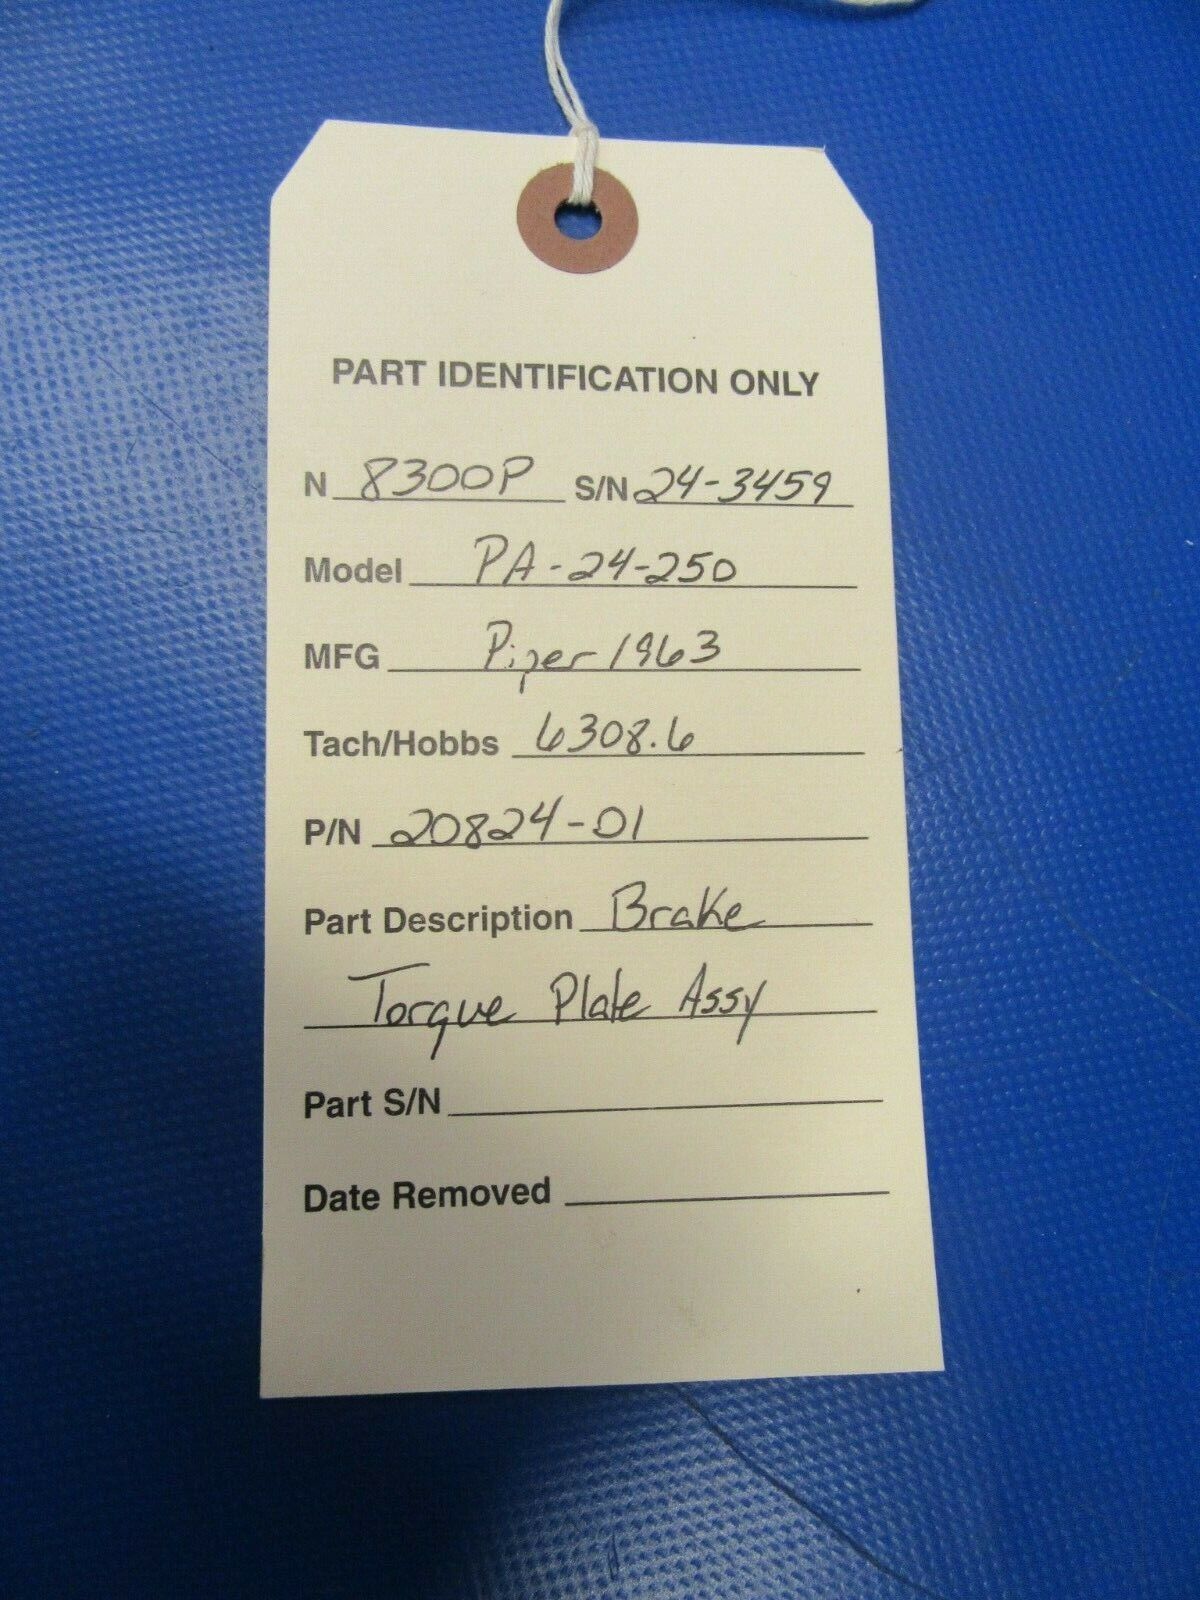 PART IDENTIFICATION ONLY
N 8300P S/N 24-3459
Model PA-24-250
MFG Piper 1963
Tach/Hobbs 6308.6
P/N 20824-01
Part Description Brake
Torque Plate Assy
Part S/N
Date Removed